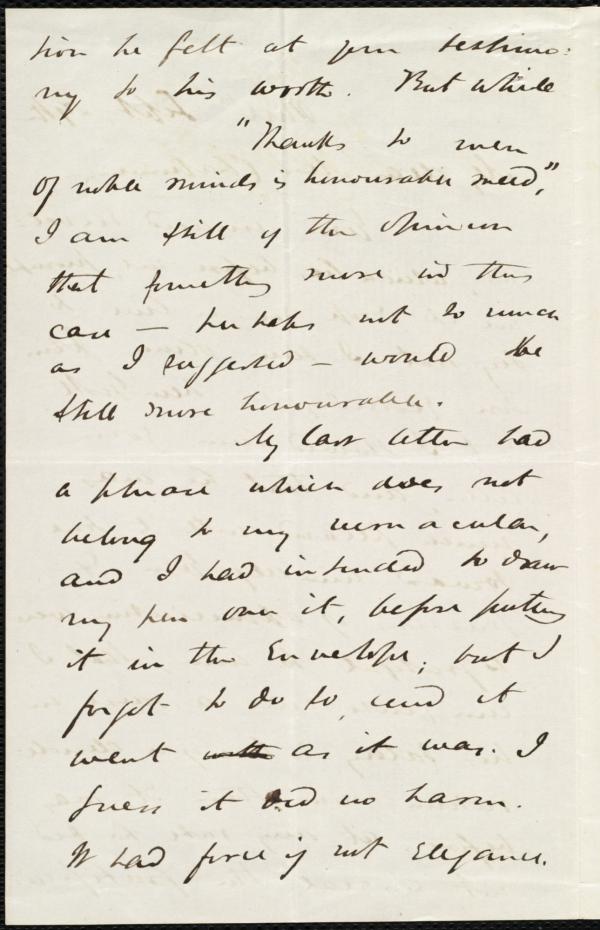 tion he felt at your testimo:
ny to his worth. But while
"Thanks to men
Of noble minds is honourable meed,"
I am still of the opinion
that something more in this
case — perhaps not so much
as I suggested — would be
still more honourable.
My last letter had
a phrase which does not
belong to my vernacular,
and I had intended to draw
my pen over it, before putting
it in the Envelope; but I
forgot to do so, and it
went as it was. I
guess it did no harm.
It had force if not elegance.